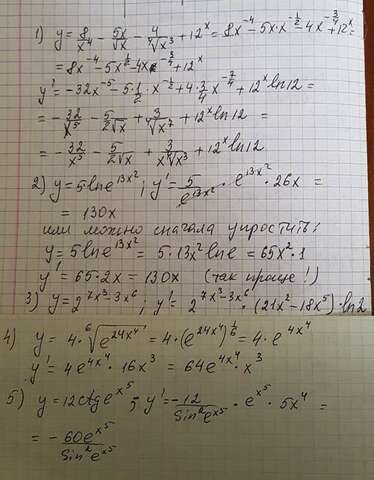 1) y = 8/x⁴ - 5x/√x - 4/⁴√x³ + 12ˣ = 8x⁻⁴ - 5x·x^(-1/2) - 4x^(-3/4) + 12ˣ =
= 8x⁻⁴ - 5x^(1/2) - 4x^(-3/4) + 12ˣ
y' = -32x⁻⁵ - 5·1/2·x^(-1/2) + 4·3/4 x^(-7/4) + 12ˣ ln12 =
= -32/x⁵ - 5/(2√x) + 3/⁴√x⁷ + 12ˣ ln12 =
= -32/x⁵ - 5/(2√x) + 3/(x⁴√x³) + 12ˣ ln12
2) y = 5 ln e^(13x²); y' = 5/e^(13x²) · e^(13x²) · 26x =
= 130x
или можно сначала упростить:
y = 5 ln e^(13x²) = 5·13x² ln e = 65x²·1
y' = 65·2x = 130x (так проще!)
3) y = 2^(7x³-3x⁶); y' = 2^(7x³-3x⁶) · (21x² - 18x⁵) · ln2
4) y = 4·⁶√(e^(24x⁴)) = 4·(e^(24x⁴))^(1/6) = 4·e^(4x⁴)
y' = 4e^(4x⁴) · 16x³ = 64e^(4x⁴) · x³
5) y = 12ctg e^(x⁵); y' = -12/(Sin² e^(x⁵)) · e^(x⁵) · 5x⁴ =
= -60e^(x⁵)/(Sin² e^(x⁵))